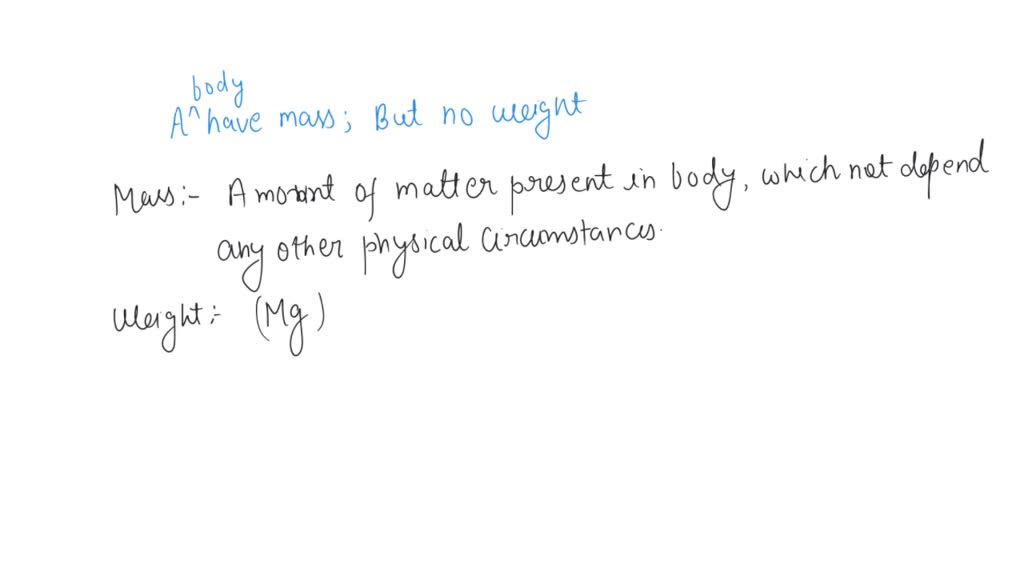 body
A^ have mass; But no weight
Mass:- Amount of matter present in body, which not depend
any other physical circumstances.
Weight:- (Mg)